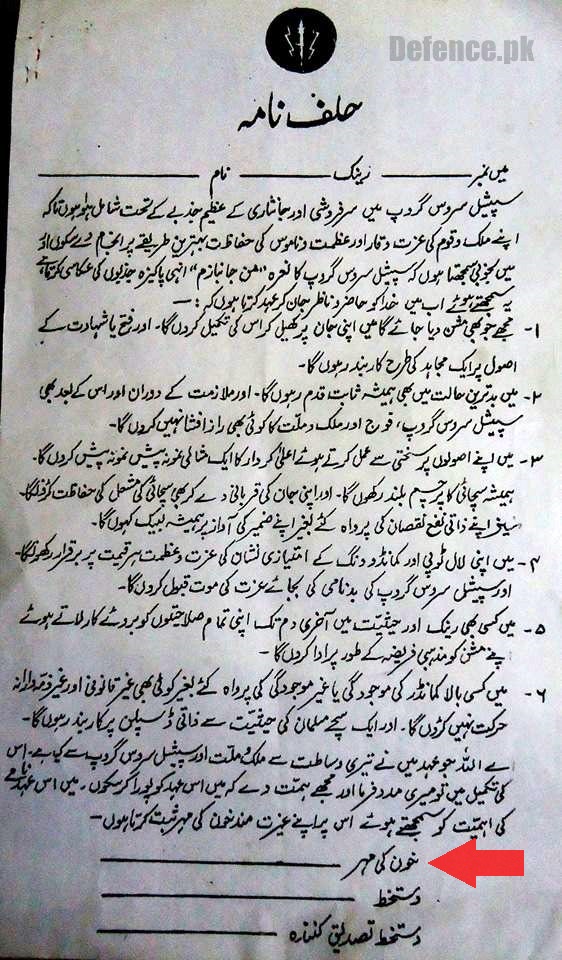 Defence.pk
حلف نامہ
میں نمبر ـــــــ رینک ـــــــ نام ـــــــ
سپیشل سروس گروپ میں سرفروشی اور جانثاری کے عظیم جذبے کے تحت شامل ہوا ہوں تاکہ
اپنے ملک و قوم کی عزت و وقار اور عظمت و ناموس کی حفاظت بہترین طریقے پر انجام دے سکوں اور
میں بخوبی سمجھتا ہوں کہ سپیشل سروس گروپ کا نعرہ "من جانبازم" انہی پاکیزہ جذبوں کی عکاسی کرتا ہے
یہ سمجھتے ہوئے اب میں خدا کو حاضر و ناظر جان کر عہد کرتا ہوں کہ :-
۱- مجھے جو بھی مشن دیا جائے گا میں اپنی جان پر کھیل کر اس کی تکمیل کروں گا۔ اور فتح یا شہادت کے
اصول پر ایک مجاہد کی طرح کاربند رہوں گا۔
۲- میں بدترین حالت میں بھی ہمیشہ ثابت قدم رہوں گا۔ اور ملازمت کے دوران اور اس کے بعد بھی
سپیشل سروس گروپ، فوج اور ملک و ملّت کا کوئی بھی راز افشا نہیں کروں گا۔
۳- میں اپنے اصولوں پر سختی سے عمل کرتے ہوئے اعلیٰ کردار کا ایک مثالی نمونہ پیش کروں گا۔
ہمیشہ سچائی کا پرچم بلند رکھوں گا۔ اور اپنی جان کی قربانی دے کر بھی سچائی کی مشعل کی حفاظت کروں گا۔
نیز اپنے ذاتی نفع نقصان کی پرواہ کئے بغیر اپنے ضمیر کی آواز پر ہمیشہ لبیک کہوں گا۔
۴- میں اپنی لال ٹوپی اور کمانڈو ونگ کے امتیازی نشان کی عزت و عظمت ہر قیمت پر برقرار رکھوں گا۔
اور سپیشل سروس گروپ کی بدنامی کی بجائے عزت کی موت قبول کروں گا۔
۵- میں کسی بھی رینک اور حیثیت میں آخری دم تک اپنی تمام صلاحیتوں کو بروئے کار لاتے ہوئے
اپنے مشن کو مذہبی فریضہ کے طور پر ادا کروں گا۔
۶- میں کسی بالا کمانڈر کی موجودگی یا غیر موجودگی کی پرواہ کئے بغیر کوئی بھی غیر قانونی اور غیر ذمہ دارانہ
حرکت نہیں کروں گا۔ اور ایک سچے مسلمان کی حیثیت سے ذاتی ڈسپلن پر کاربند رہوں گا۔
اے اللہ جو عہد میں نے تیری وساطت سے ملک و ملّت اور سپیشل سروس گروپ سے کیا ہے۔ اس
کی تکمیل میں تو میری مدد فرما اور مجھے ہمت دے کہ میں اس عہد کو پورا کر سکوں۔ میں اس عہد نامے
کی اہمیت کو سمجھتے ہوئے اس پر اپنے عزت مند خون کی مہر ثبت کرتا ہوں۔
خون کی مہر ـــــــ
دستخط ـــــــ
دستخط تصدیق کنندہ ـــــــ